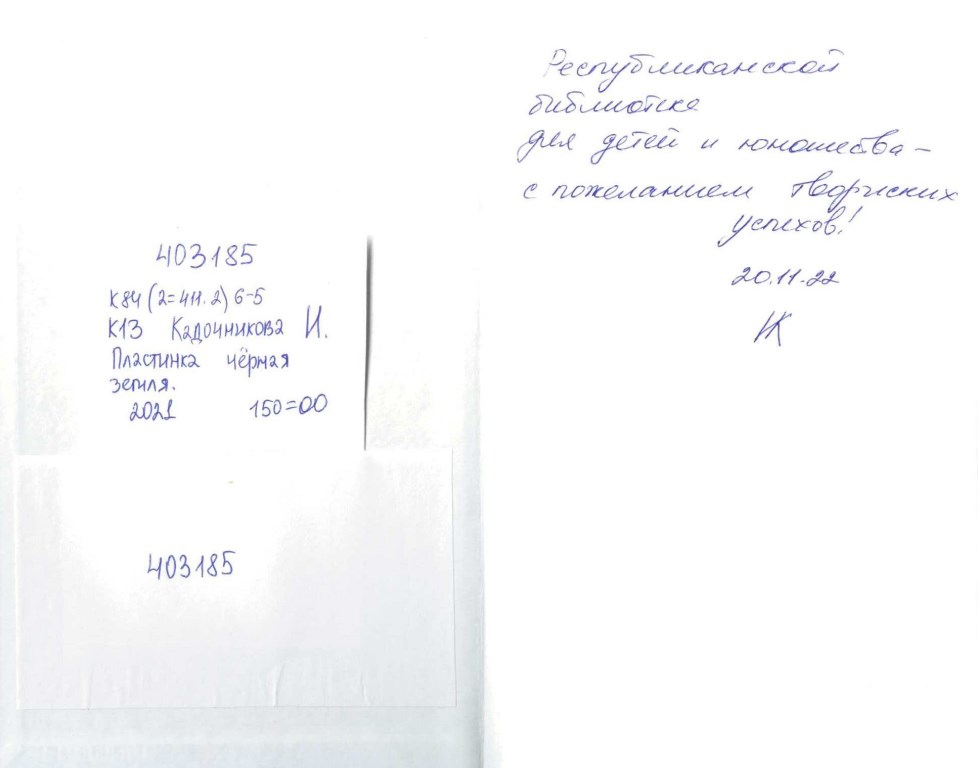 403185
К84(2=411.2)6-5
К13 Кадочникова И.
Пластинка чёрная
земля.
2021 150=00
403185
Республиканской
библиотеке
для детей и юношества –
с пожеланием творческих
успехов!
20.11.22
ИК